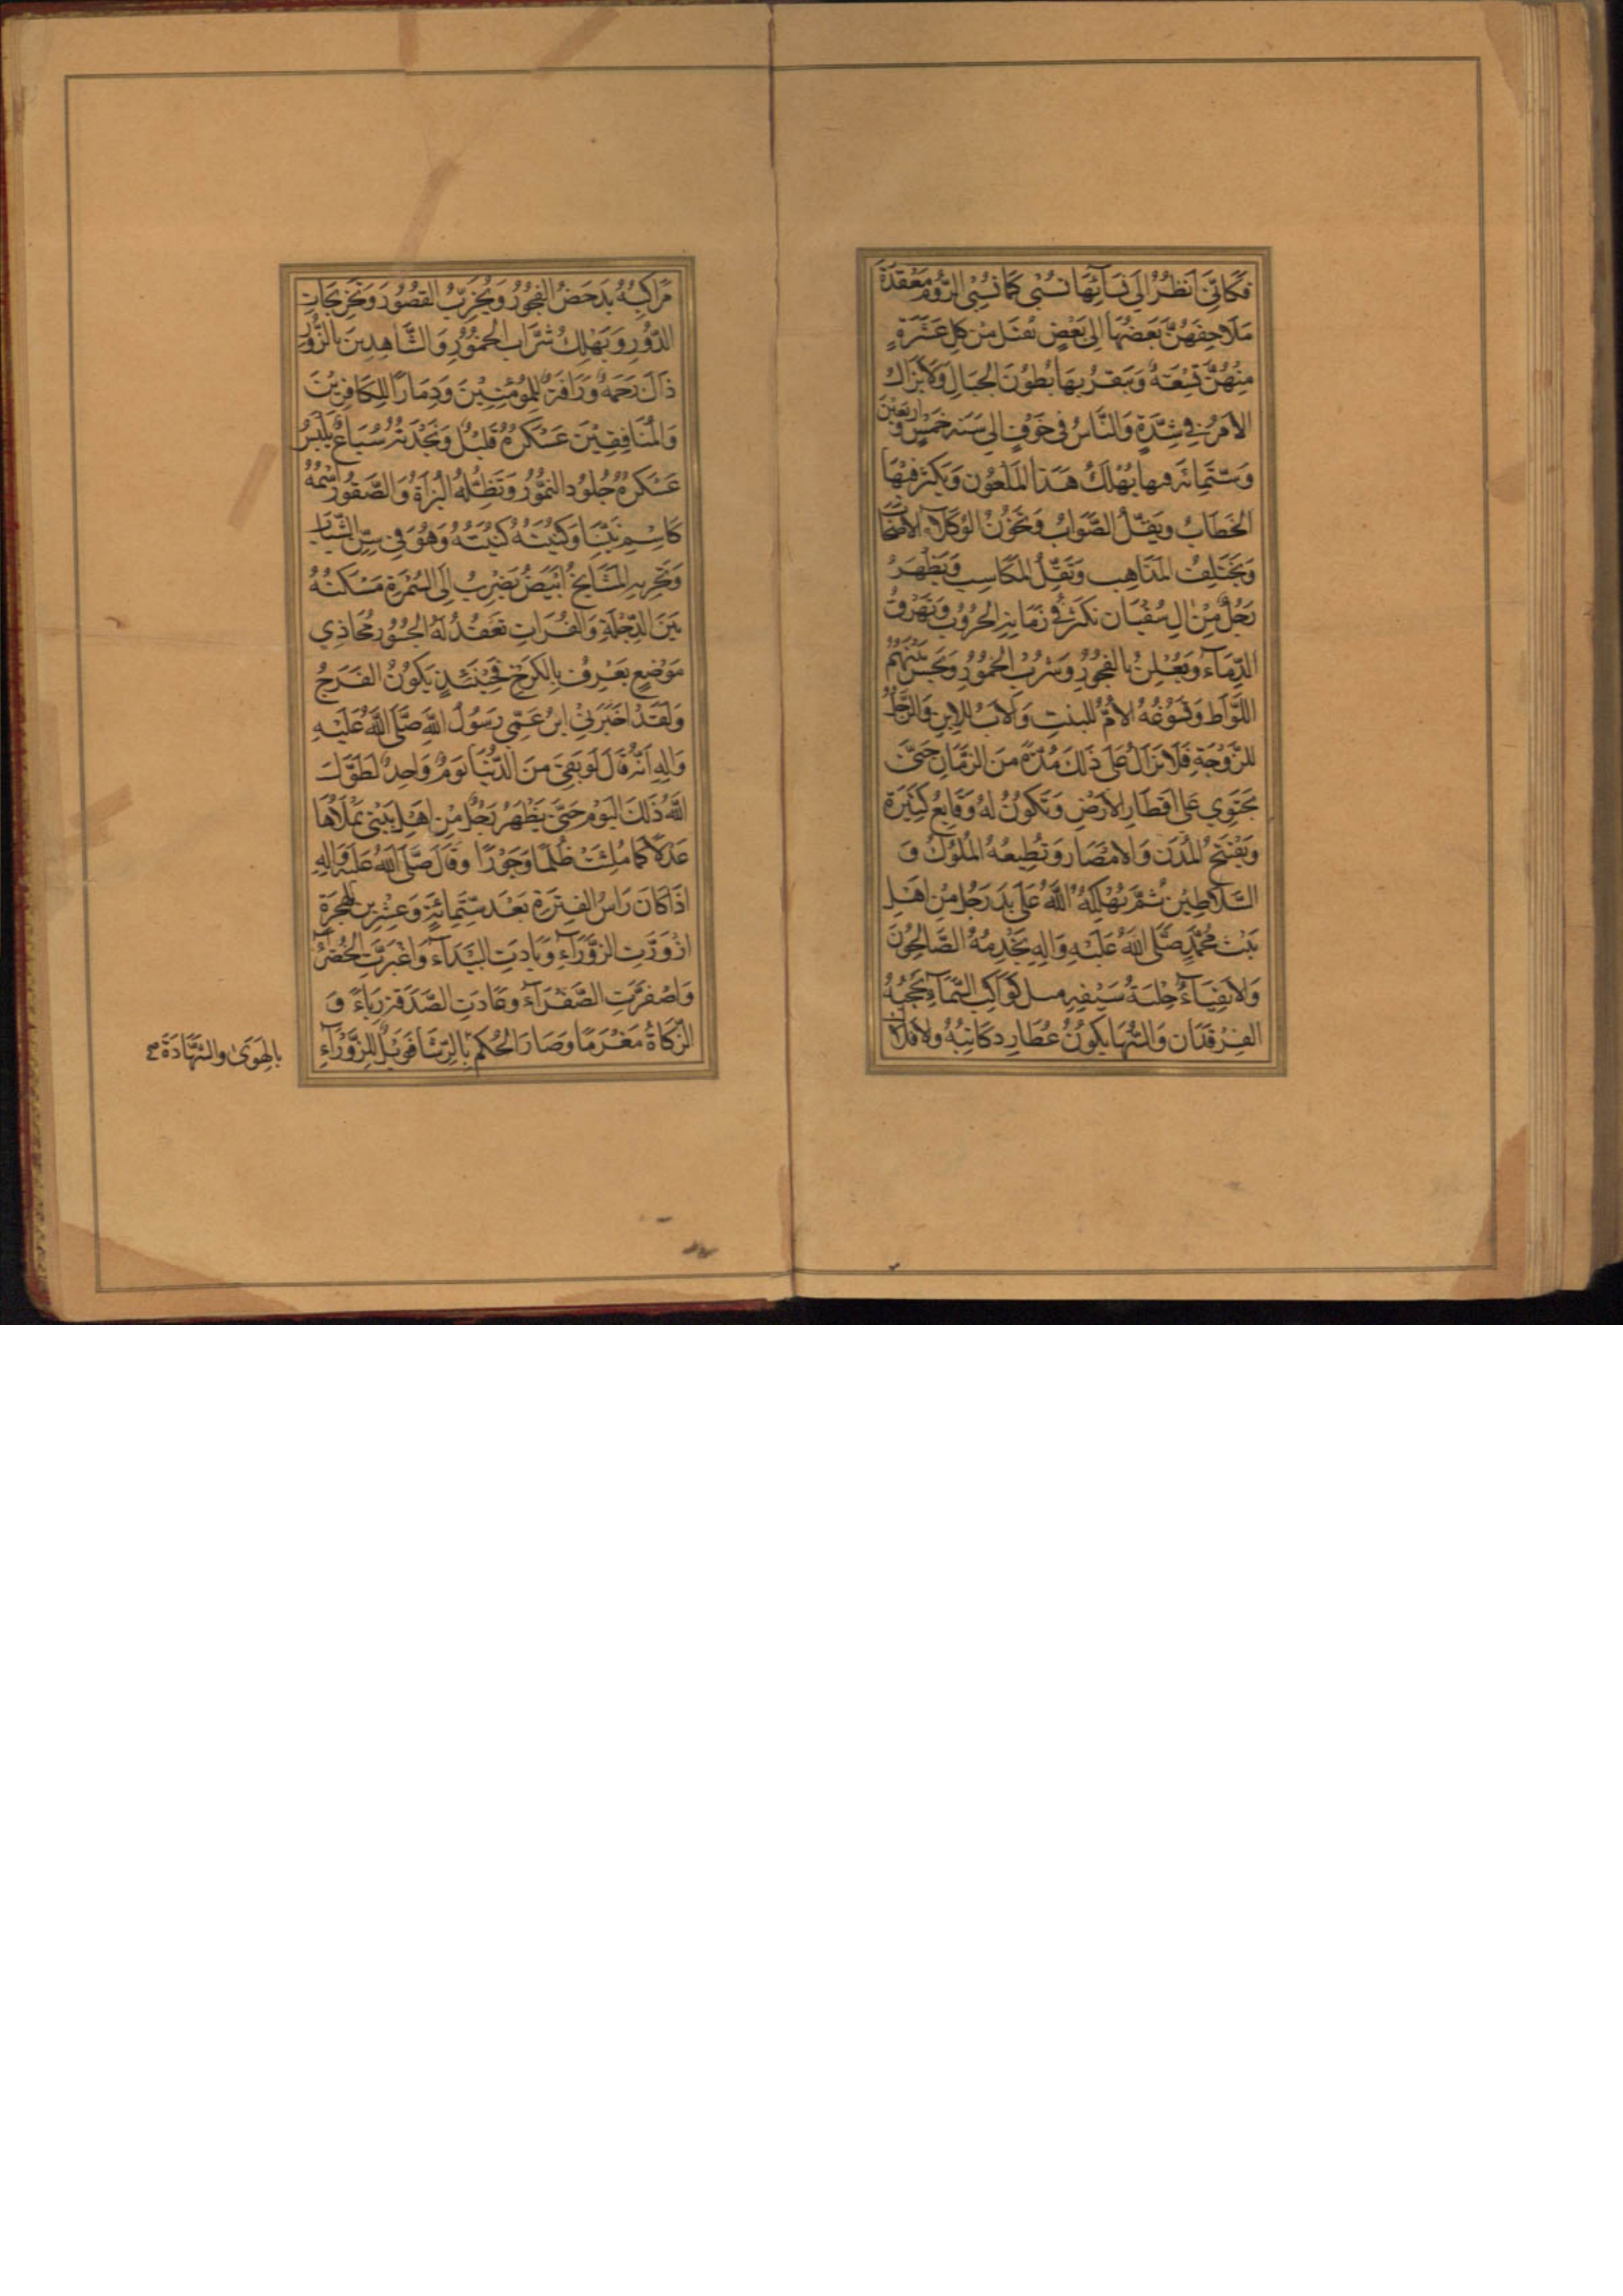 فَكَاَنّي اَنْظُرُ اِلي نِسَآئِهَا تُسْبى كَمَا تُسْبَى الرُّوُم مُعَقَّدَةً
مَلَاحِفَهُنَّ بَعْضُهَا اِلىٰ بَعْضٍ يُقْتَل مِنْ كلِ عَشَرَةٍ
مِنْهُنَّ تِسْعَةٌ وَيَبْقَرُ بِهَا بُطُونَ الجِبَالِ وَلَا يَزَالُ
الاَمْرُ في شِدَّةٍ وَالنَّاسُ في خَوْفٍ الي سَنَةِ خَمْسٍ وَ اَرْبَعِيْنَ
وَستَّمِائَةٍ فيها يُهْلَكُ هَذا المَلْعُون وَيَكثُر فِيْهَا
الخَطَابُ ويَقِلُّ الصَّوَابُ وَتَخُوْنُ الوُكَلَآءُ الاَصْحَابَ
وَيَخْتَلِفُ المَذَاهِب وَتَقِلُّ المَكَاسِب وَيَظْهَرُ
رَجُلٌ مِنْ اٰلِ سُفْيَان تكثر في زَمَانِهِ الحُرُوْبُ وَتُهْرَقُ
الدِّمَآءُ وَيُعْلَنُ بالفُجُوْرِ وَشُرْبُ الخُمُوْرِ
اللَّوَاط وَتُسَوِّغُهُ الاُمُّ للبِنتِ وَالاَبُ لِلاِبنِ وَالرَّجُلُ
للزَّوْجَةِ فَلَا يَزَالُ عَلىٰ ذَلِكَ مُدَّةً مِنَ الزَّمَانِ حَتّىٰ
يَحْتَوِي عَلىٰ اَقطَارِ الاَرْضِ وَتَكُوْنُ لَهُ وَقَايِعُ كَثِيْرَة
وَيَفْتَحُ المُدُنَ وَالاَمْصَار وَتُطِيعُهُ المُلُوْكُ وَ
السَّلَاطِيْن ثُمَّ يُهْلِكُهُ اللَّهُ عَلىٰ يَدِ رَجُلٍ مِنْ اَهْلِ
بَيْتِ مُحَمَّدٍ صَلَّى اللهُ عَلَيْهِ وَاٰلِهِ يَخْدِمُهُ الصَّالِحُوْنَ
وَالاَتقِيَآءُ حِلْيَةُ سَيْفِهِ مثل كَوَاكِبِ السَّمَآءِ يَحْجُبُهُ
الفَرْقَدَانِ وَالسُّهَا يَكُوْنُ عُطَارِد كَاتِبُهُ وَالاَفْلَاكُ
مَرَاكِبُهُ يَدحَضُ الفُجُوْرَ وَيُخَرِّبُ القُصُوْرَ وَيُخرِجُ
الدُّوْرِ وَيَهْلِكُ شُرَّاب الخُمُوْرِ وَالشَّاهِدِينَ بالزُّورِ
ذٰلكَ رَحْمَةً وَرَأفَةً لِلْمُؤْمِنِيْنَ وَدِمَارًا لِلكَافِرِيْنَ
وَالمُنَافِقِيْنَ عَسْكَرُهُ قَلِيْلٌ وَنَجْدَتُهُ سُبَاعٌ يَلبَسُ
عَسْكَرُهُ جُلُوْدَ النُّمُوْرِ وَتَظِلُّهُ البُزَاةُ وَالصُّقُوْرُ اِسْمُهُ
كَاسْمِ نَبِيِّنَا وَكُنْيَتُهُ كُنْيَتُهُ وَهُوَ فِي سِنِّ الشَّبَاب
وَتَجْرِبَةِ المَشَايِخِ اَبْيَضُ يَضْرِبُ اِلَى السُّمْرَةِ مَسْكَنُهُ
بَيْنَ الدِّجْلَةِ وَالفُرَاتِ تُعْقَدُ لَهُ الجُسُوْرُ مُحَاذِي
مَوْضِعٍ يُعْرفُ بِالكَرْخِ فَحِيْنَئِذٍ يَكُوْنُ الفَرَجُ
وَلَقَدْ اَخْبَرَنِي ابْنُ عَمّي رَسُوْلُ اللهِ صَلَّى اللهُ عَلَيْهِ
وَاٰلِهِ اَنَّهُ قَالَ لَو بَقِيَ مِنَ الدُّنْيَا يَوْمٌ وَاحِدٌ لَطَوَّلَ
اللهُ ذٰلِكَ اليَوْمَ حَتّىٰ يَظْهَرَ رَجُلٌ مِنْ اَهْلِ بَيْتي يَمْلَأُهَا
عَدْلًا كَمَا مُلِئَتْ ظُلْمًا وَجَوْرًا وَقَالَ صَلَّى اللهُ عَلَيْهِ وَاٰلِهِ
اِذَا كَانَ رَاسُ الفَترَةِ بَعْدَ سِتَّمِائَةٍ وَعِشْرِينَ لِلهِجْرَةِ
ازْوَرَّتِ الزَّوْرَآءِ وَبَادَتِ البَيْدَآء وَاغْبَرَّتِ الخَضْرَآءُ
وَاصْفَرَّتِ الصَّفْرَآءُ وَعَادَتِ الصَّدَقَةُ رِيَاءً وَ
الزَّكَاةُ مَغْرَمًا وَصَارَ الحُكْمُ بِالرِّشَا فَوَيْلٌ لِلزَّوْرَآءِ
بالهَوىٰ والشَّهَادَة صح